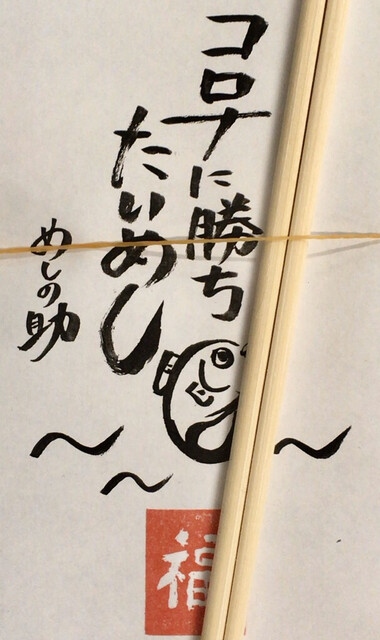 コロナに勝ち
たいめし
めしの助
福